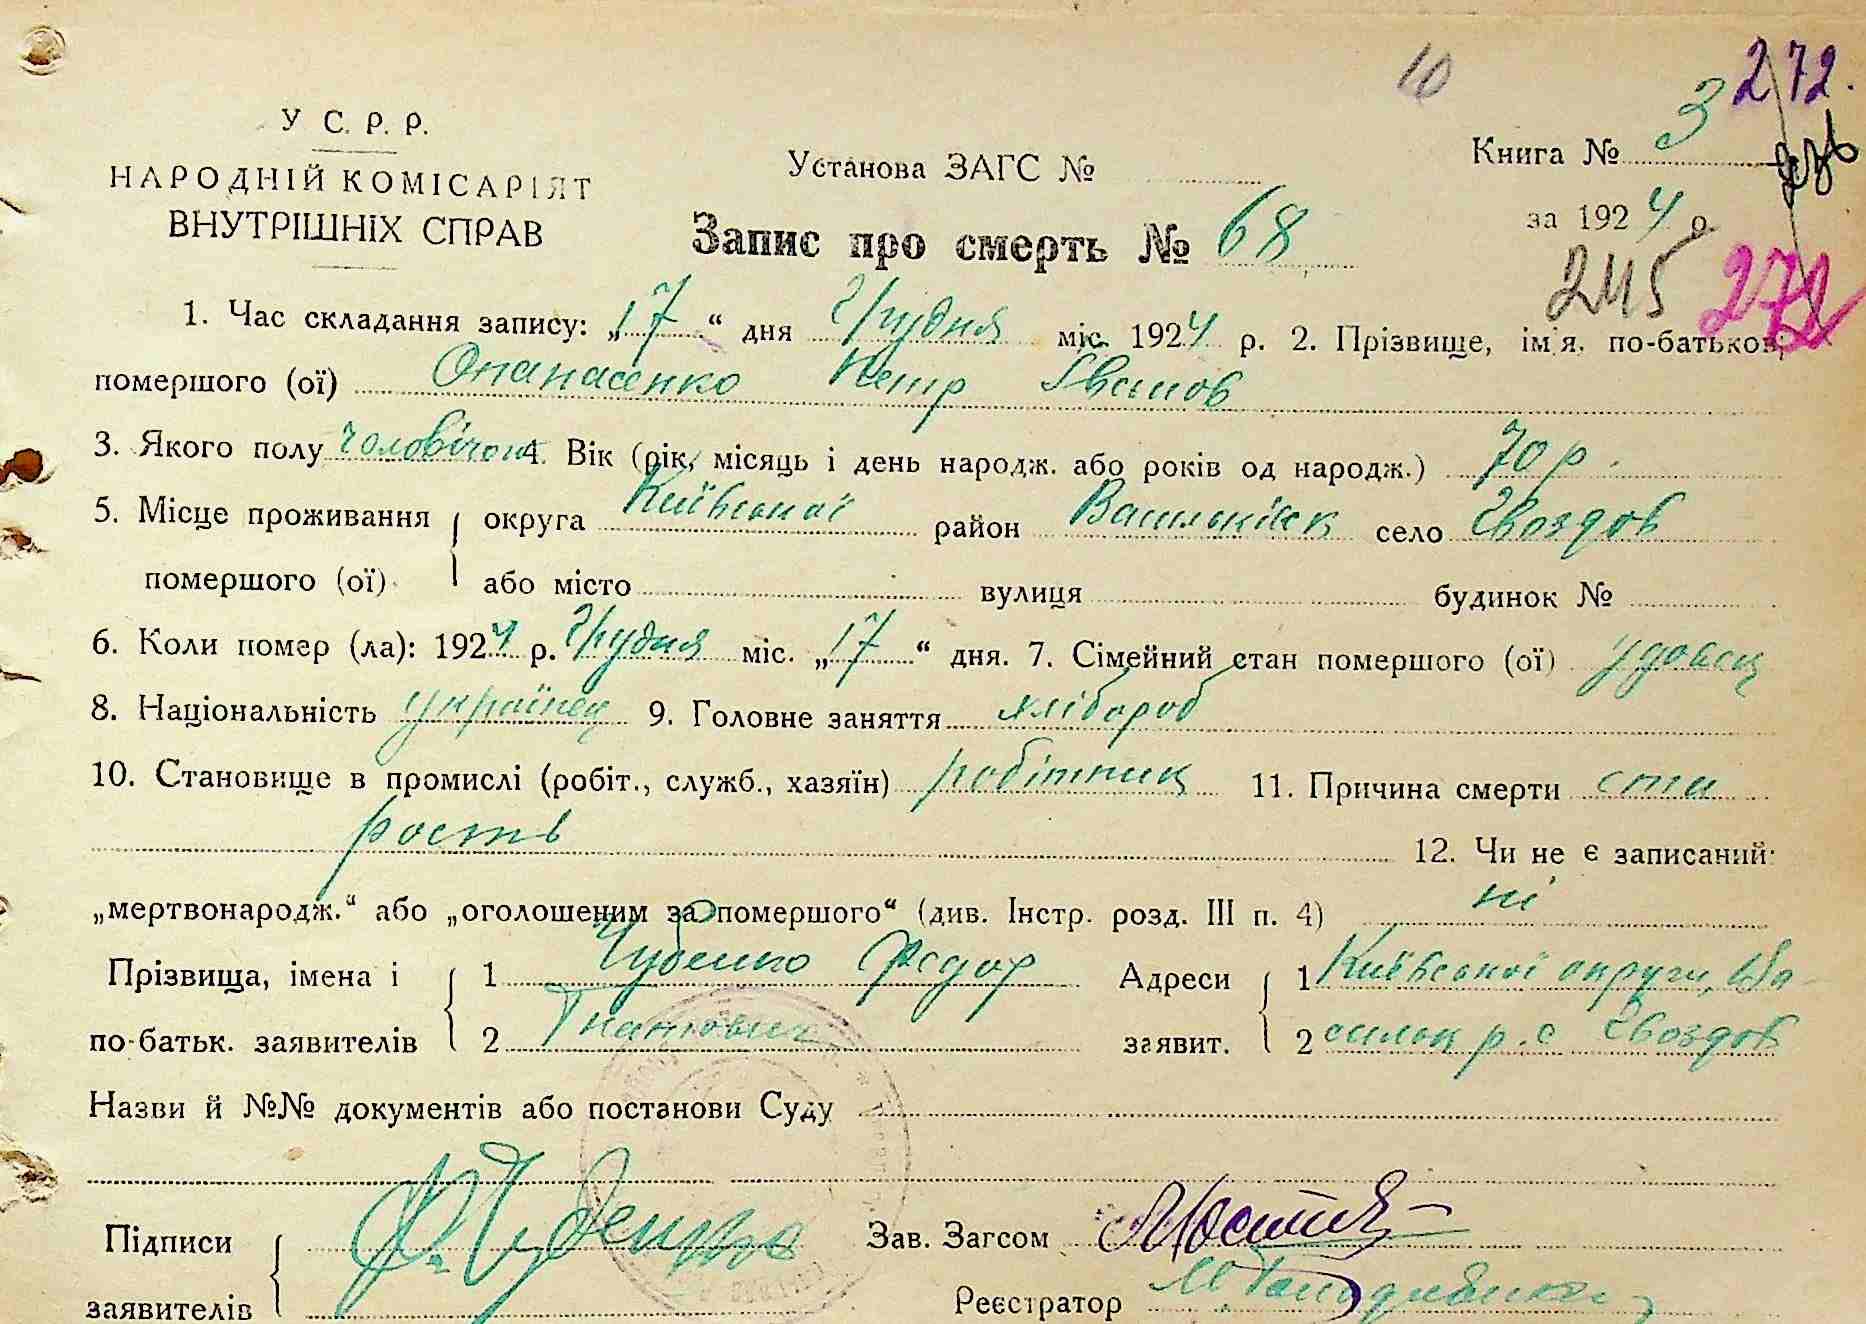 10
272.
У С. Р. Р.
НАРОДНІЙ КОМІСАРІЯТ
ВНУТРІШНІХ СПРАВ
Установа ЗАГС №
Книга № 3
Запис про смерть № 68
за 1924 р.
245 272
1. Час складання запису: „17“ дня Грудня міс. 1924 р. 2. Прізвище, ім'я, по-батькові,
помершого (ої) Опанасенко Петр Іванов
3. Якого полу чоловічого 4. Вік (рік, місяць і день народж. або років од народж.) 70 р.
5. Місце проживання округа Київської район Васильківськ село Гвоздов
помершого (ої) або місто вулиця будинок №
6. Коли помер (ла): 1924 р. Грудня міс. „17“ дня. 7. Сімейний стан помершого (ої) удовец
8. Національність українец 9. Головне заняття хлібороб
10. Становище в промислі (робіт., служб., хазяїн) робітник 11. Причина смерти ста
рость 12. Чи не є записаний:
„мертвонародж.“ або „оголошеним за помершого“ (див. Інстр. розд. III п. 4) ні
Прізвища, імена і 1 Чубенко Федор Адреси 1 Київської округи, Ва-
по-батьк. заявителів 2 Гнатович заявит. 2 сильк р. с Гвоздов
Назви й №№ документів або постанови Суду
Підписи Ф. Чубенко Зав. Загсом
заявителів Реєстратор